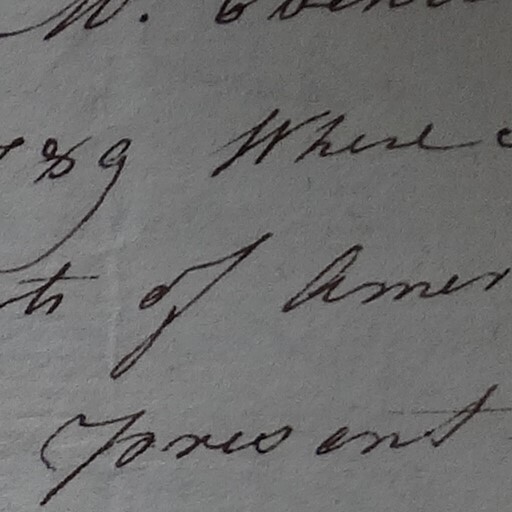 M.
89 Where
ts of Amer
present